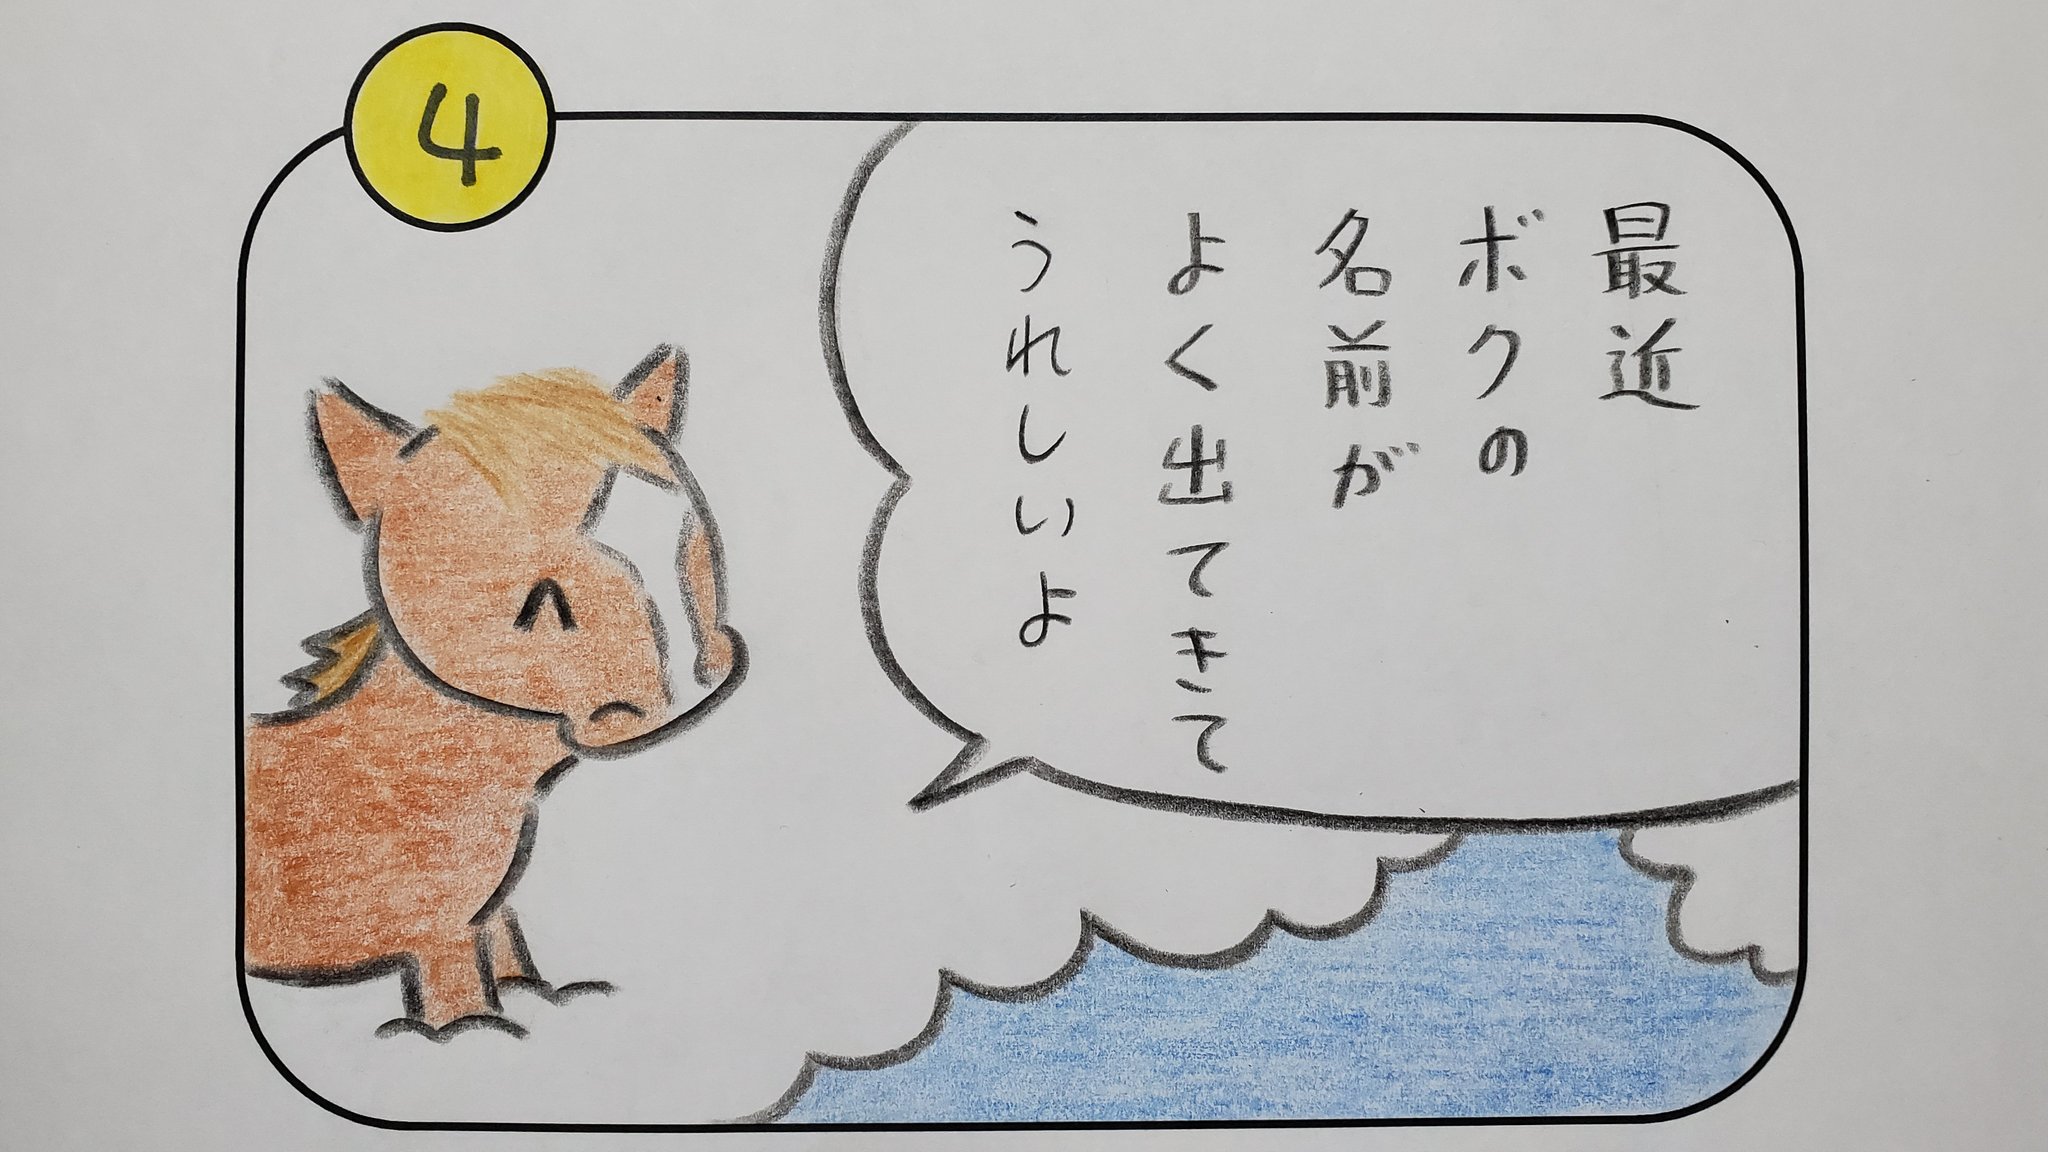 4
最近
ボクの
名前が
よく出てきて
うれしいよ